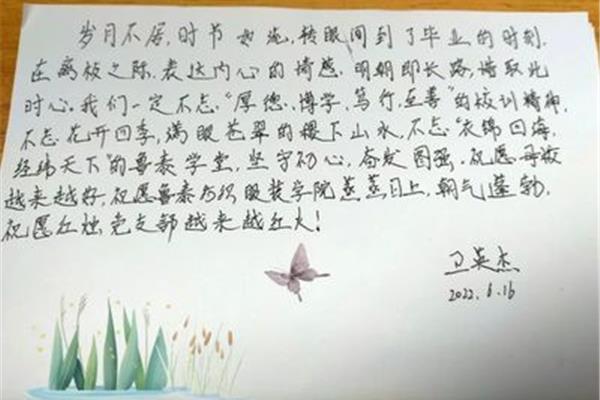 岁月不居,时节如流,转眼间到了毕业的时刻.
在离校之际,表达内心的情感.明朝即长路,惜取此
时心.我们一定不忘“厚德,博学,笃行,至善”的校训精神,
不忘花开四季,满眼苍翠的稷下山水,不忘“衣锦四海,
经纬天下”的鲁泰学堂,坚守初心,奋发图强.祝愿母校
越来越好,祝愿鲁泰纺织服装学院蒸蒸日上,朝气蓬勃,
祝愿红烛党支部越来越红火!
卫英杰
2022.6.16